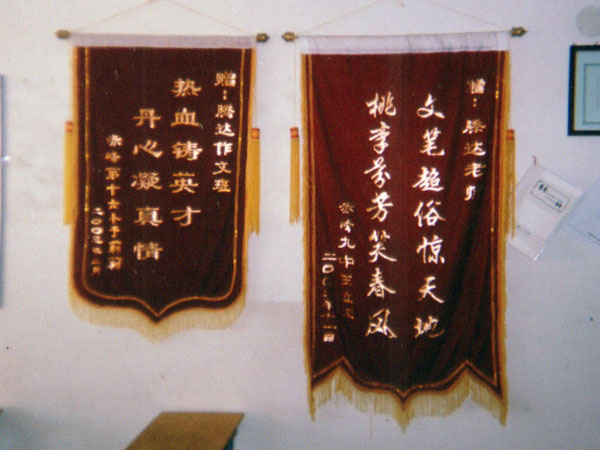 赠:腾达作文班
热血铸英才
丹心凝真情
赤峰第十六小于
二00三年
赠:腾达老师
文笔超俗惊天地
桃李芬芳笑春风
赤峰九中王
二00